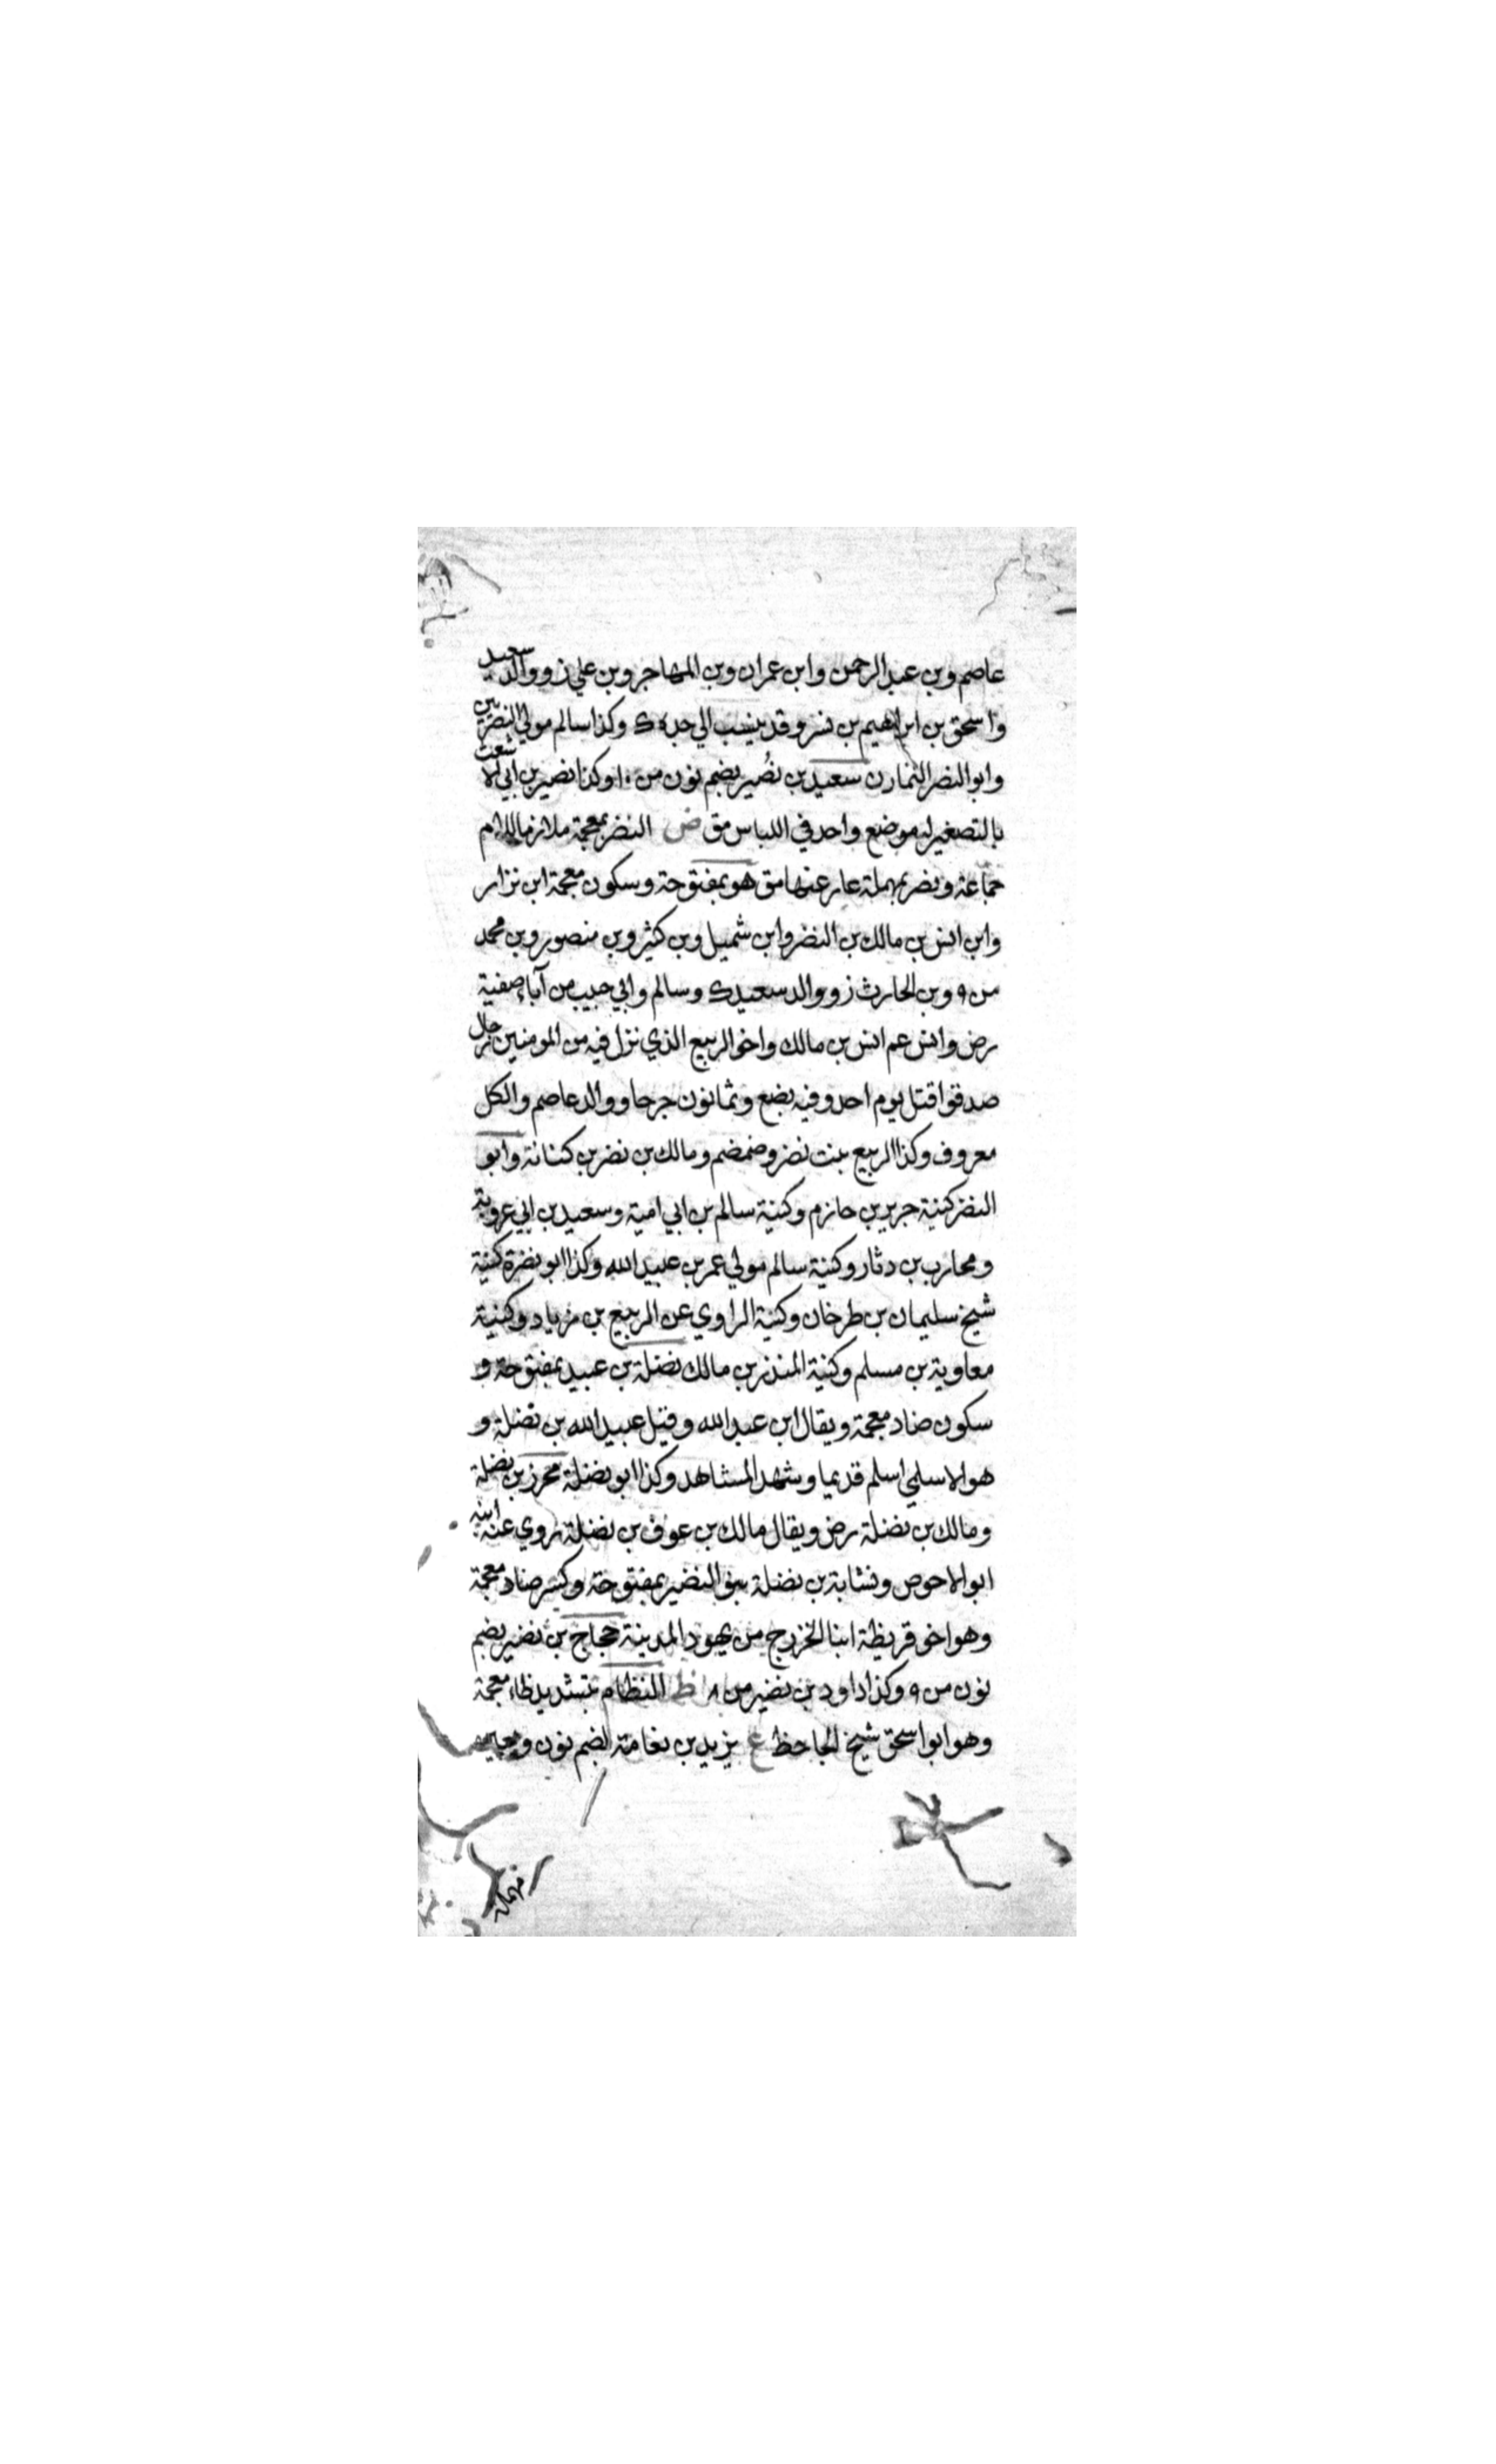 عاصم وبن عبد الرحمن وابن عمران وبن المهاجر وبن علي ز ووالد سعيد
واسحق بن ابراهيم بن نسر وقد ينسب الي جده ك وكذا سالم مولي النصريين
وابو النصر التمار ن سعيد بن نُصير بضم نون من ١٠ وكذا نصير بن ابي الاشعث
بالتصغير له موضع واحد في اللباس مق ض النضر بمعجمة ملازم اللام
جماعة ونصر بمهملة عار عنها مق هو بمفتوحة وسكون معجمة ابن نزار
وابن انس بن مالك بن النضر وابن شميل وبن كثير وبن منصور وبن محمد
من ٩ وبن الحارث ز ووالد سعيد ك وسالم وابي حبيب من آباء صفية
رض وانس عم انس بن مالك واخو الربيع الذي نزل فيه من المومنين رجال
صدقوا قتل يوم احد وفيه بضع وثمانون جرحا ووالد عاصم والكل
معروف وكذا الربيع بنت نضر وضمضم ومالك بن نضر بن كنانة وابو
النضر كنية جرير بن حازم وكنية سالم بن ابي امية وسعيد بن ابي عروبة
ومحارب بن دثار وكنية سالم مولي عمر بن عبيد الله وكذا ابو نضرة كنية
شيخ سليمان بن طرخان وكنية الراوي عن الربيع بن زياد وكنية
معاوية بن مسلم وكنية المنذر بن مالك نضلة بن عبيد بمفتوحة و
سكون ضاد معجمة ويقال ابن عبد الله وقيل عبيد الله بن نضلة و
هو الاسلمي اسلم قديما وشهد المشاهد وكذا ابو نضلة محرز بن نضلة
ومالك بن نضلة رض ويقال مالك بن عوف بن نضلة روي عنه ابنه
ابو الاحوص ونشابة بن نضلة بنو النضير بمفتوحة وكسر ضاد معجمة
وهو اخو قريظة ابنا الخزرج من يهود المدينة حجاج بن نضير بضم
نون من ٩ وكذا داود بن نضير من ٨ ظ النظام بتشديد ظاء معجمة
وهو ابو اسحق شيخ الجاحظ ع يزيد بن نعامة بضم نون وبعين
مهملة